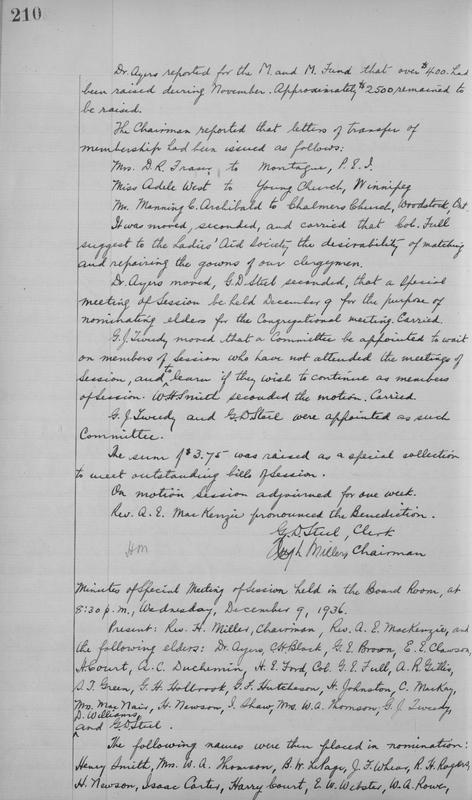 210
Dr. Ayers reported for the M. and M. Fund that over $400. had
been raised during November. Approximately $2500 remained to
be raised.
The Chairman reported that letters of transfer of
membership had been issued as follows:
Mrs. D. R. Fraser to Montague, P.E.I.
Miss Adele West to Young Church, Winnipeg
Mr. Manning C. Archibald to Chalmers Church, Woodstock, Ont.
It was moved, seconded, and carried that Col. Full
suggest to the Ladies' Aid Society the desirability of matching
and repairing the gowns of our clergymen.
Dr. Ayers moved, G. D. Steel seconded, that a Special
meeting of Session be held December 9 for the purpose of
nominating elders for the Congregational meeting. Carried.
G. J. Tweedy moved that a Committee be appointed to wait
on members of Session who have not attended the meetings of
Session, and to learn if they wish to continue as members
of Session. W H Smith seconded the motion. Carried.
G. J. Tweedy and G. D Steel were appointed as such
Committee.
The sum of $3.75 was raised as a special collection
to meet outstanding bills of Session.
On motion Session adjourned for one week.
Rev. A. E. MacKenzie pronounced the Benediction.
G. D Steel, Clerk
Hugh Miller, Chairman
HM
Minutes of Special Meeting of Session held in the Board Room, at
8:30 p.m., Wednesday, December 9, 1936.
Present: Rev. H. Miller, Chairman, Rev. A. E. MacKenzie, and
the following elders: Dr. Ayers, C H Black, G. E. Brown, E. E. Clawson,
H. Court, A. C. Duchemin, H. E. Ford, Col. G. E. Full, A. R. Gillis,
S. T. Green, G. H. Holbrook, G. F. Hutcheson, H. Johnston, C. MacKay,
Mrs. MacNair, H. Newson, I. Shaw, Mrs. W. A. Thomson, G. J. Tweedy,
D. Williams,
and G. D. Steel.
The following names were then placed in nomination:
Henry Smith, Mrs. W. A. Thomson, B. W. LePage, J. F. Whear, R. H. Rogers,
H. Newson, Isaac Carter, Harry Court, E. W. Webster, W. A. Rowe,